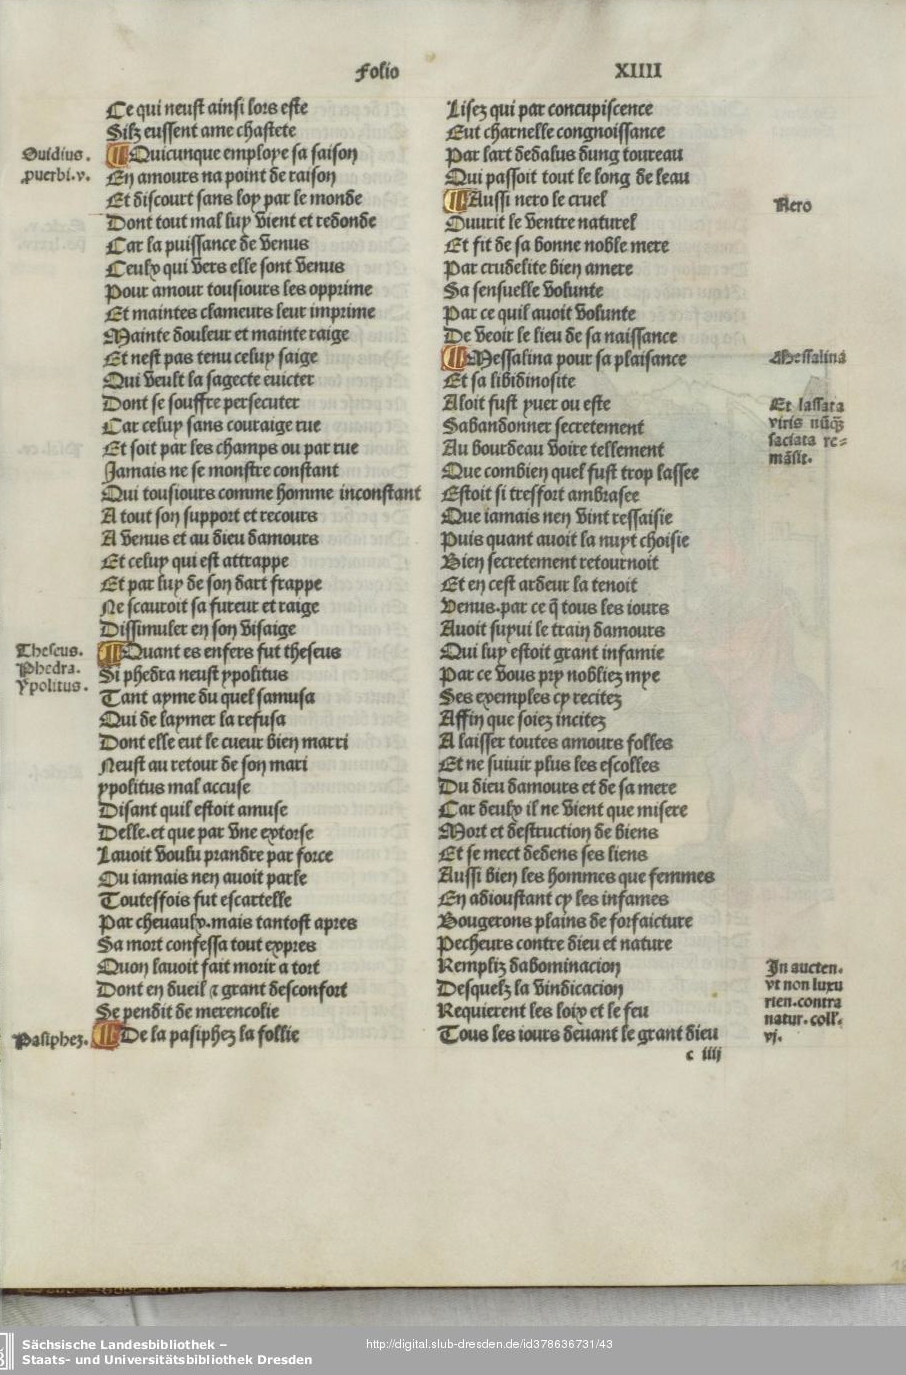 Folio XIIII
Ce qui neust ainsi lors este
Silz eussent ame chastete
Ouidius.
Quicunque employe sa saison
puerbi.v.
En amours na point de raison
Et discourt sans loy par le monde
Dont tout mal luy vient et redonde
Car la puissance de venus
Ceulx qui vers elle sont venus
Pour amour tousiours les opprime
Et maintes clameurs leur imprime
Mainte douleur et mainte raige
Et nest pas tenu celuy saige
Qui veult la sagecte euicter
Dont se souffre persecuter
Car celuy sans couraige rue
Et soit par les champs ou par rue
Jamais ne se monstre constant
Qui tousiours comme homme inconstant
A tout son support et recours
A venus et au dieu damours
Et celuy qui est attrappe
Et par luy de son dart frappe
Ne scauroit sa fureur et raige
Dissimuler en son visaige
Theseus.
Phedra.
Ypolitus.
Quant es enfers fut theseus
Si phedra neust ypolitus
Tant ayme du quel samusa
Qui de laymer la refusa
Dont elle eut le cueur bien marri
Neust au retour de son mari
ypolitus mal accuse
Disant quil estoit amuse
Delle.et que par vne extorse
Lauoit voulu prandre par force
Ou iamais nen auoit parle
Toutesfois fut escartelle
Par cheuaulx.mais tantost apres
Sa mort confessa tout expres
Quon lauoit fait morir a tort
Dont en dueil ⁊ grant desconfort
Se pendit de merencolie
Pasiphez.
De la pasiphez la follie
Lisez qui par concupiscence
Eut charnelle congnoissance
Par lart dedalus dung toureau
Qui passoit tout le long de leau
Aussi nero le cruel
Nero
Ouurit le ventre naturel
Et fit de sa bonne noble mere
Par crudelite bien amere
Sa sensuelle volunte
Par ce quil auoit volunte
De veoir le lieu de sa naissance
Messalina pour sa plaisance
Messalina
Et sa libidinosite
Aloit fust yuer ou este
Et lassata
viris nūq̄
saciata re=
māsit.
Sabandonner secretement
Au bourdeau voire tellement
Que combien quel fust trop lassee
Estoit si tresfort ambrasee
Que iamais nen vint ressaisie
Puis quant auoit la nuyt choisie
Bien secretement retournoit
Et en cest ardeur la tenoit
Venus.par ce q̄ tous les iours
Auoit suyui le train damours
Qui luy estoit grant infamie
Par ce vous pry nobliez mye
Ses exemples cy recitez
Affin que soiez incitez
A laisser toutes amours folles
Et ne suiuir plus les escolles
Du dieu damours et de sa mere
Car deulx il ne vient que misere
Mort et destruction de biens
Et se mect dedens ses liens
Aussi bien les hommes que femmes
En adioustant cy les infames
Bougerons plains de forfaicture
Pecheurs contre dieu et nature
Rempliz dabominacion
In aucten.
vt non luxu
rien.contra
natur.coll.
vj.
Desquelz la vindicacion
Requierent les loix et le feu
Tous les iours deuant le grant dieu
c iiii
Sächsische Landesbibliothek –
Staats- und Universitätsbibliothek Dresden
http://digital.slub-dresden.de/id378636731/43